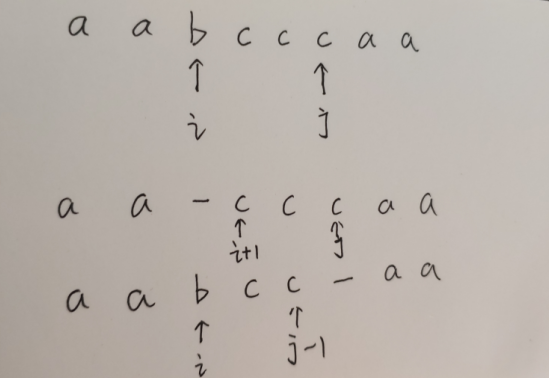 a a b c c c a a
↑ ↑
i j
a a - c c c a a
↑ ↑
i+1 j
a a b c c - a a
↑ ↑
i j-1